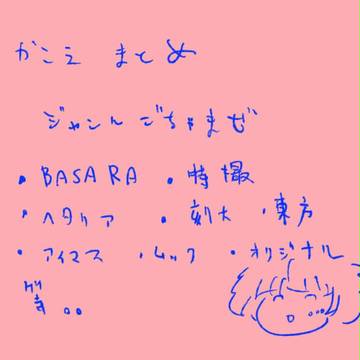 かこえ まとめ
ジャンルごちゃまぜ
・BASARA ・特撮
・ヘタリア ・刻大 ・東方
・アイマス ・ムック ・オリジナル
等..